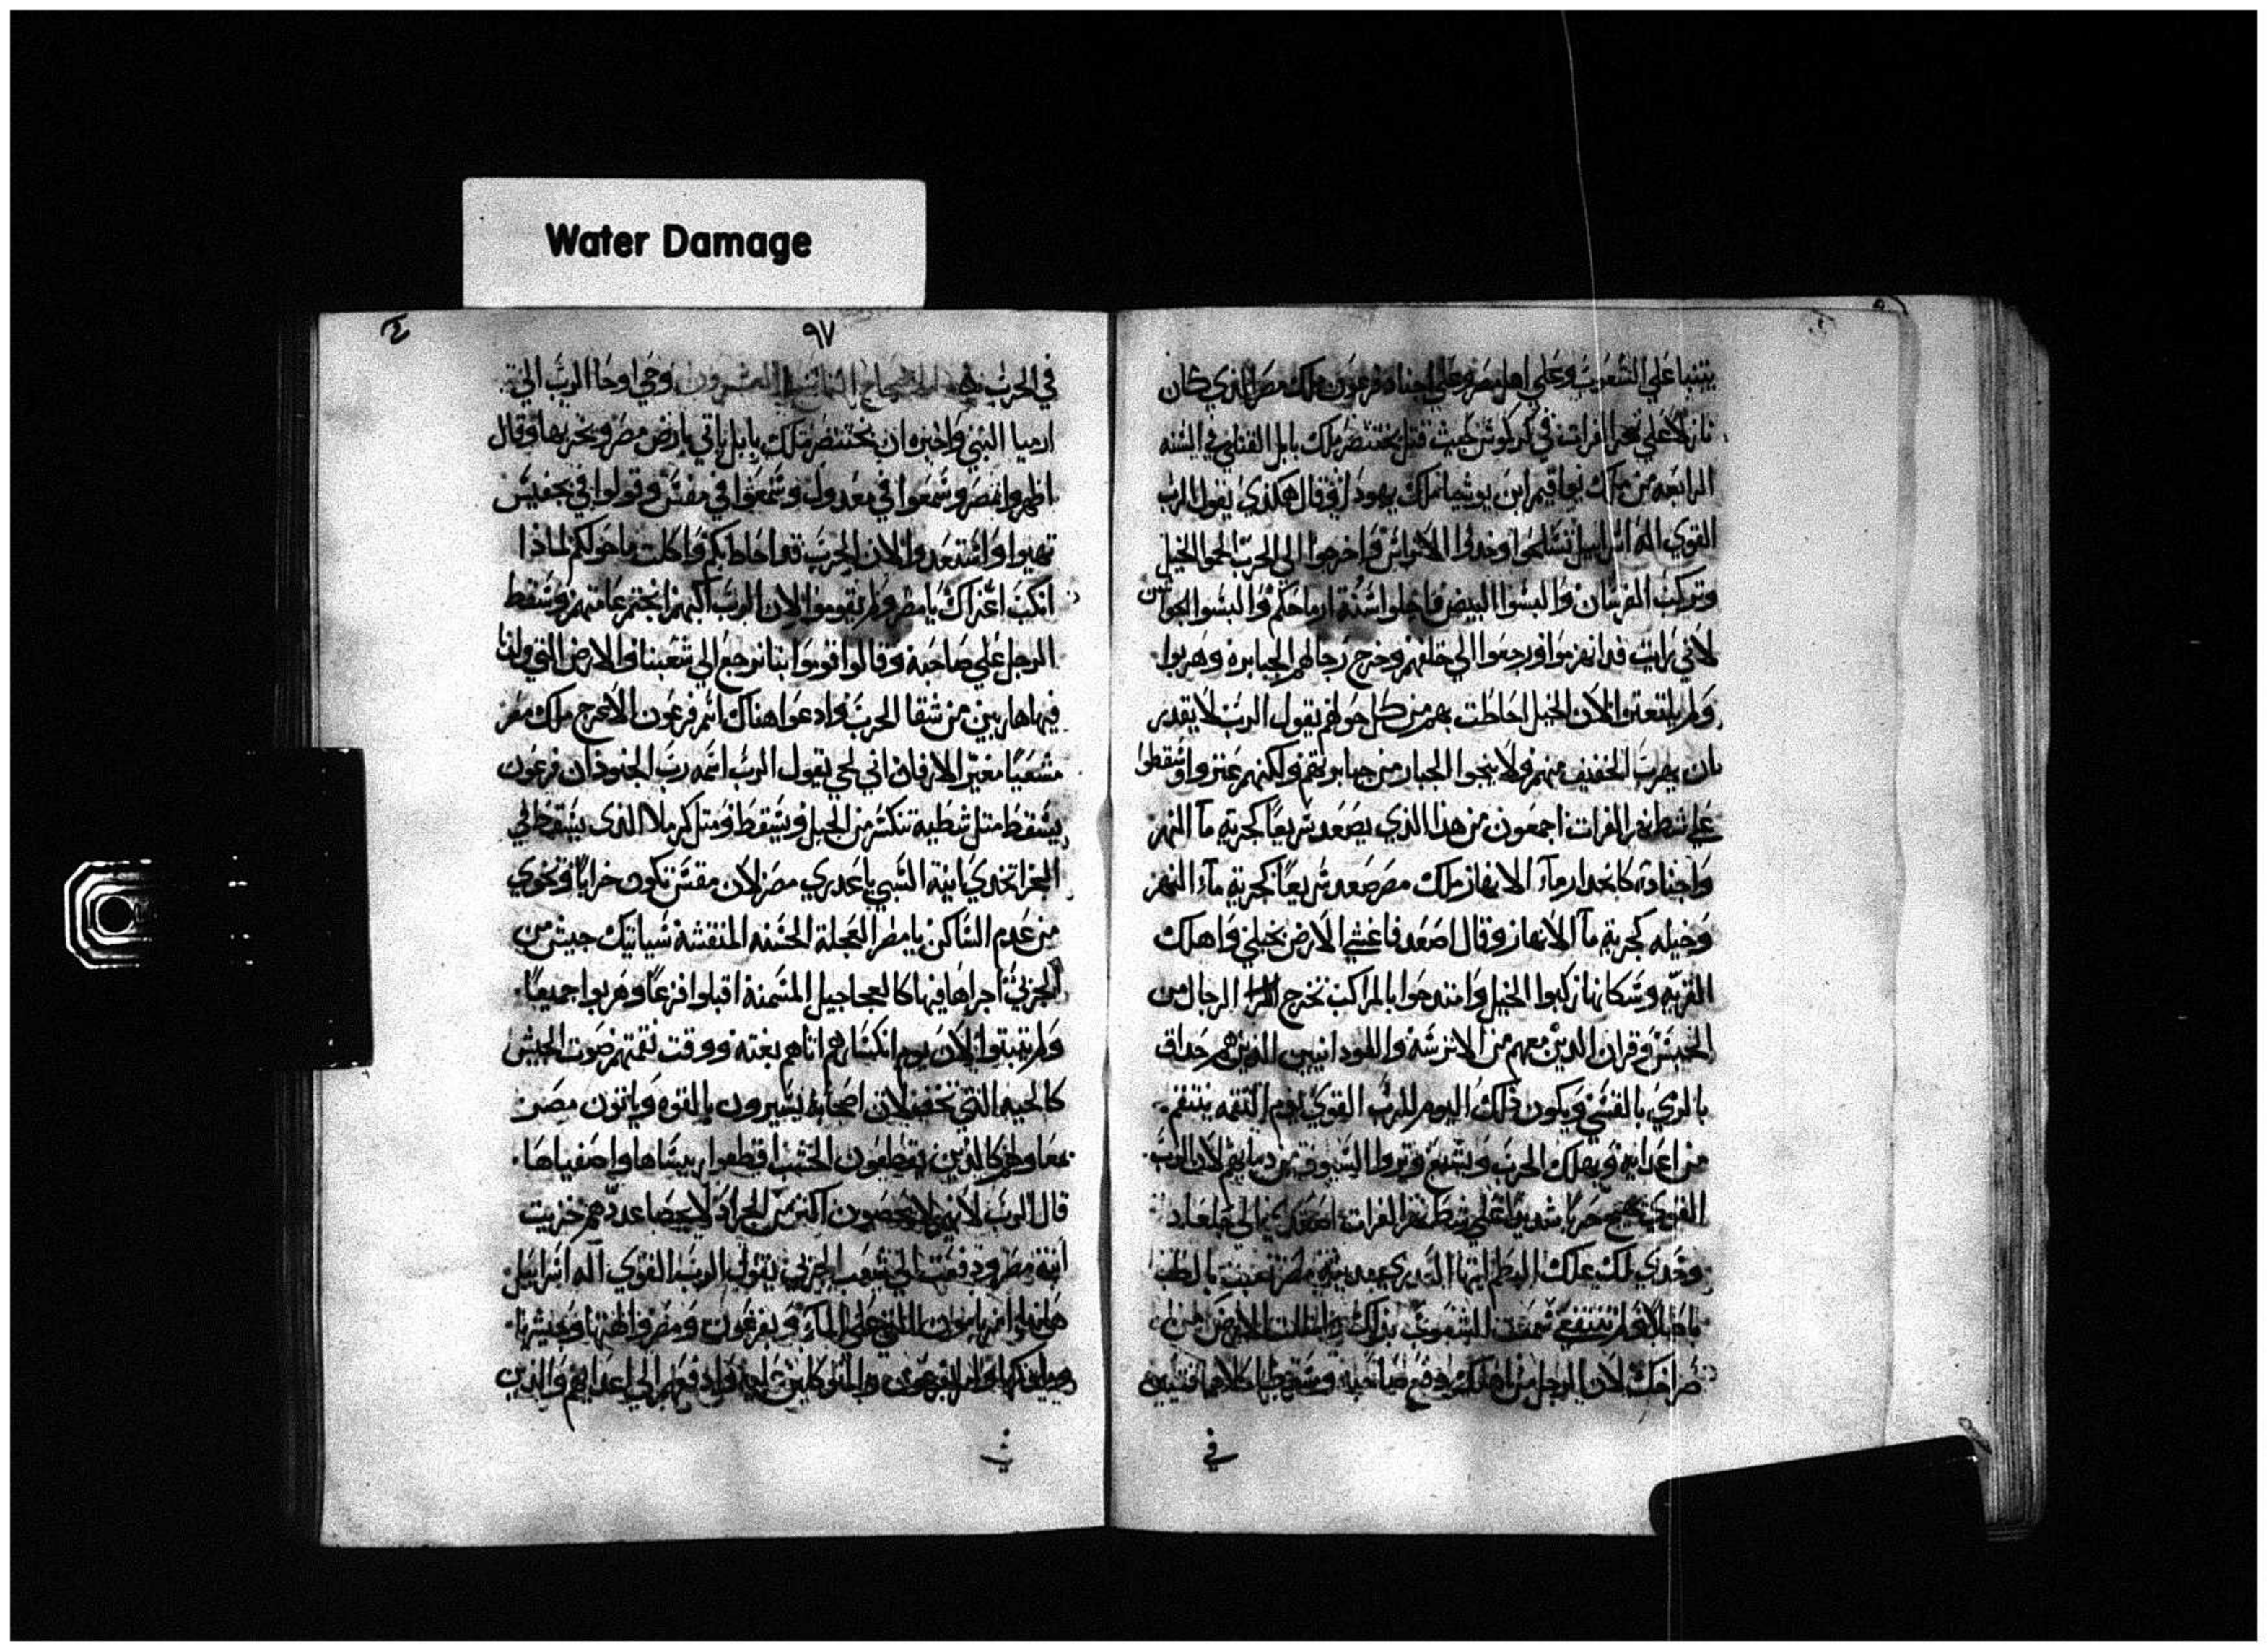 Water Damage
يتنبا علي الشعوب وعلي اهل مصر وعلي اجناد فرعون ملك مصر الذي كان
نازلا علي نهر الفرات في كركوش حيث قتل بختنصر ملك بابل القتلي في السنه
الرابعه من ملك يواقيم ابن يوشيا ملك يهودا وقال هكذي يقول الرب
القوي اله اسراييل تسلحوا وخدوا الاتراس واخرجوا الي الحرب الجموا الخيل
وتركب الفرسان والبسوا البيض اسنة ارماحكم والبسوا الجواشن
لاني رايت قد انهزموا ورجعوا الي خلفهم وخرج رجالهم الجبابره وهربوا
ولم يلتفتوا لان الخيل احاطت بهم من كل حولهم يقول الرب لا يقدر
ان يهرب الخفيف منهم ولا ينجوا الجبار من جبابرتهم ولكنهم عتروا وسقطوا
علي شط نهر الفرات اجمعون من هذا الذي يصعد سريعا كجرية مآ النهر
واجناده كانحدار مآء الانهار ملك مصر صعد سريعا كجرية مآء النهر
وخيله كجرية مآ الانهار وقال اصعد فاغشي الارض بخيلي واهلك
القريه وسكانها اركبوا الخيل وامتدحوا بالمراكب تخرج الرجال من
الحبش وقران الدين معهم من الاترسه واللودانيين الدين هم حداق
بالرمي بالقسي ويكون ذلك اليوم للرب القوي يوم النقمه ينتقم
من اعدايه ويهلك الحرب ويشبع وتروا السيوف من دمايهم لان الرب
القوي حربا شديدا علي شط نهر الفرات اصعدي الي جلعاد
وخدي لك علك البطم ايتها بالطب
باطلا ولم تنتفعي سمعت الشعوب بذلك وامتلت الارض من
صراخك لان الرجل صاحبه وسقطا كلاهما قتيلين
في
٩٧
في الحرب الاصحاح الثامن والعشرون وحي اوحا الرب الي
ارميا النبي واخبره ان بختنصر ملك بابل ياتي بارض مصر ويخربها وقال
اظهروا بمصر وسمعوا في مغدول وسمعوا في مفس وقولوا في تحفيس
تهيوا واستعدوا لان الحرب قد احاط بكم واكلت ما حولكم لماذا
انكب اعزاك يا مصر ولم يقوموا لان الرب اكبهم عامتهم وسقط
الرجل علي صاحبه وقالوا قوموا بنا نرجع الي شعبنا والارض التي ولدنا
فيها هاربين من شقا الحرب وادعوا هناك اسم فرعون الاعرج ملك مصر
مشعيا مغير الازمان اني لحي يقول الرب اسمه رب الجنود ان فرعون
يسقط متل شظية تنكسر من الجبل ويسقط ومتل كرملا الذي يسقط في
البحر اتخدي انية السبي يا عدري مصر لان مفس تكون خرابا وتخوي
من عدم الساكن يا مصر العجلة الحسنه المنقشة سياتيك جيش من
الجربي اجراها فيها كالعجاجيل المسمنة اقبلوا فزعا وهربوا جميعا
ولم يتبتوا لان يوم انكسارهم اتاهم بغته ووقت نقمتهم صوت الجيش
كالحيه التي لان اصحابه يسيرون بالقوه وياتون مصر
معاولهم كالذين يقطعون الخشب اقطعوا واصفياها
قال الرب لانهم لا يحصون اكتر من الجراد لا يحصا عددهم خزيت
ابنة مصر ودفعت الي شعب الجربي يقول الرب القوي اله اسراييل
هانذا علي المآء وبفرعون ومصر والهتها وعيشها
وملوكها والمتوكلين عليه وادفعهم الي اعدايهم والذين